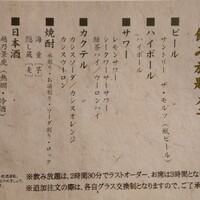 ■ビール
サントリー ザ・モルツ(瓶ビール)
■ハイボール
ハイボール
■サワー
レモンサワー
シークワーサーサワー
緑茶ハイ/ウーロンハイ
■カクテル
カシスソーダ
カシスオレンジ
カシスウーロン
■焼酎
水割り・お湯割り・ソーダ割り・ロック
海童(芋)
隠し蔵(麦)
■日本酒
越乃景虎(熱燗・冷酒)
※飲み放題は、2時間30分でラストオーダー、お席は3時間とな
※追加注文の際は、各自グラス交換制となりますので、ご了承